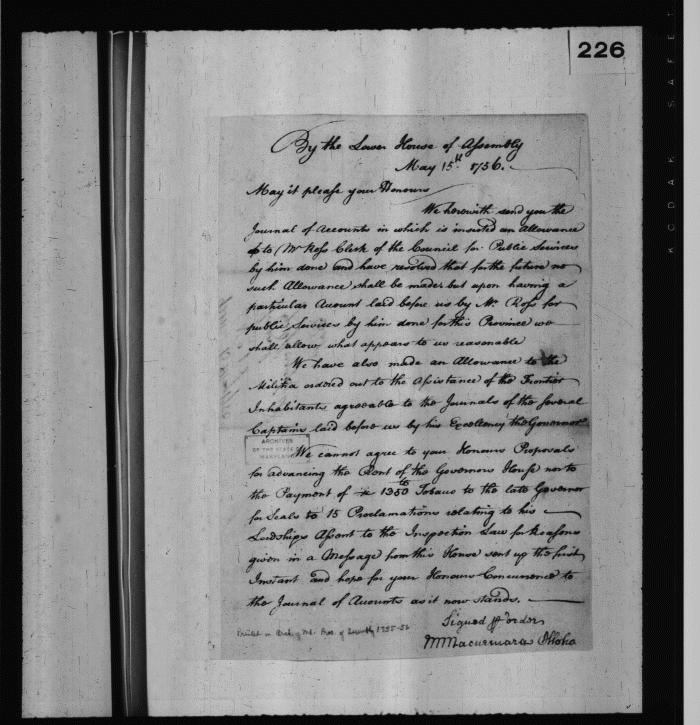 226
By the Lower House of Assembly
May 15th 1756.
May it please your Honours
We herewith send you the
Journal of Accounts in which is inserted an Allowance
to Mr Ross Clerk of the Council for Public Services
by him done and have resolved that for the future no
such Allowance shall be made but upon having a
particular Account laid before us by Mr. Ross for
public Services by him done for this Province we
shall allow what appears to us reasonable
We have also made an Allowance to the
Militia ordered out to the Assistance of the Frontier
Inhabitants agreeable to the Journals of the several
Captains laid before us by his Excellency the Governor
ARCHIVES
OF THE STATE
MARYLAND
We cannot agree to your Honours Proposals
for advancing the Rent of the Governors House nor to
the Payment of 1350 Tobacco to the late Governor
for Seals to 15 Proclamations relating to his
Lordships Assent to the Inspection Law for Reasons
given in a Message from this House sent up the first
Instant and hope for your Honours Concurrence to
the Journal of Accounts as it now stands.
Signed p order
MMacnemara
Printed in Arch. of Md. Proc. of Assembly 1755-56
KODAK SAFET